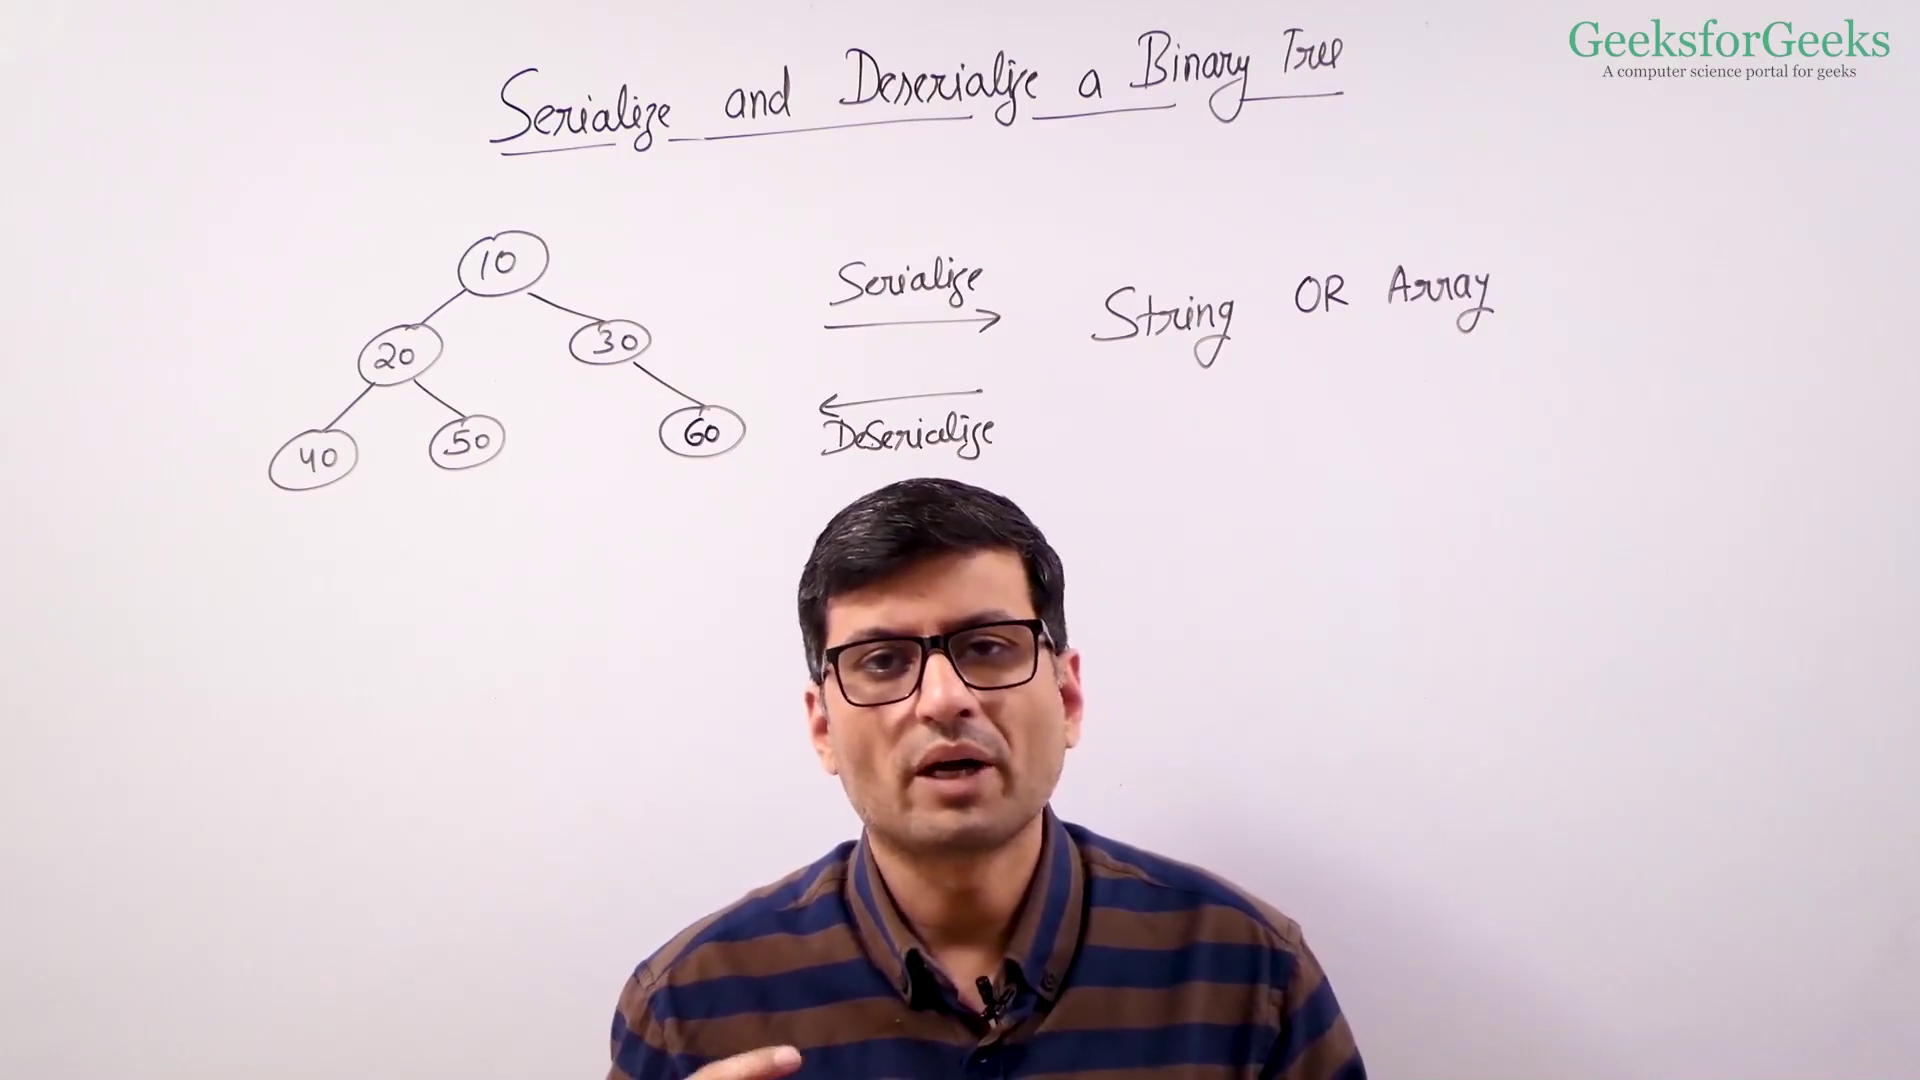 GeeksforGeeks
A computer science portal for geeks
Serialize and Deserialize a Binary Tree
10
20
30
40
50
60
Serialize
String OR Array
DeSerialize